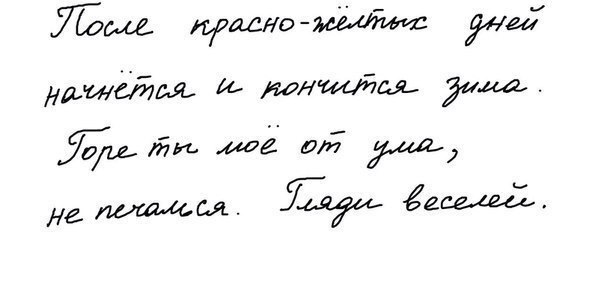 После красно-жёлтых дней
начнётся и кончится зима.
Горе ты моё от ума,
не печалься. Гляди веселей.